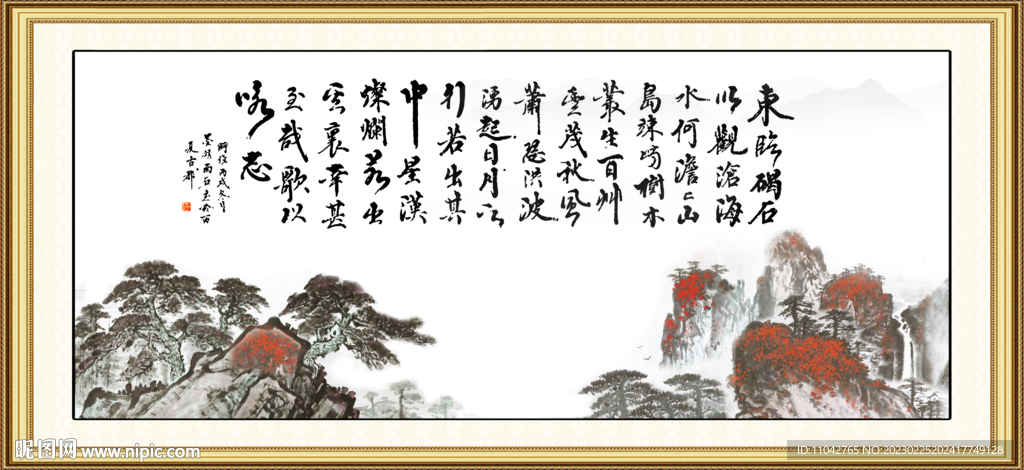 東臨碣石
以觀滄海
水何澹々山
島竦峙樹木
叢生百艸
豐茂秋風
蕭瑟洪波
湧起日月之
行若出其
中星漢
燦爛若出
其裏幸甚
至哉歌以
詠志
時維丙戌冬月
南石
夏古都
昵图网 www.nipic.com
ID:11042765 NO:20230225202417749128